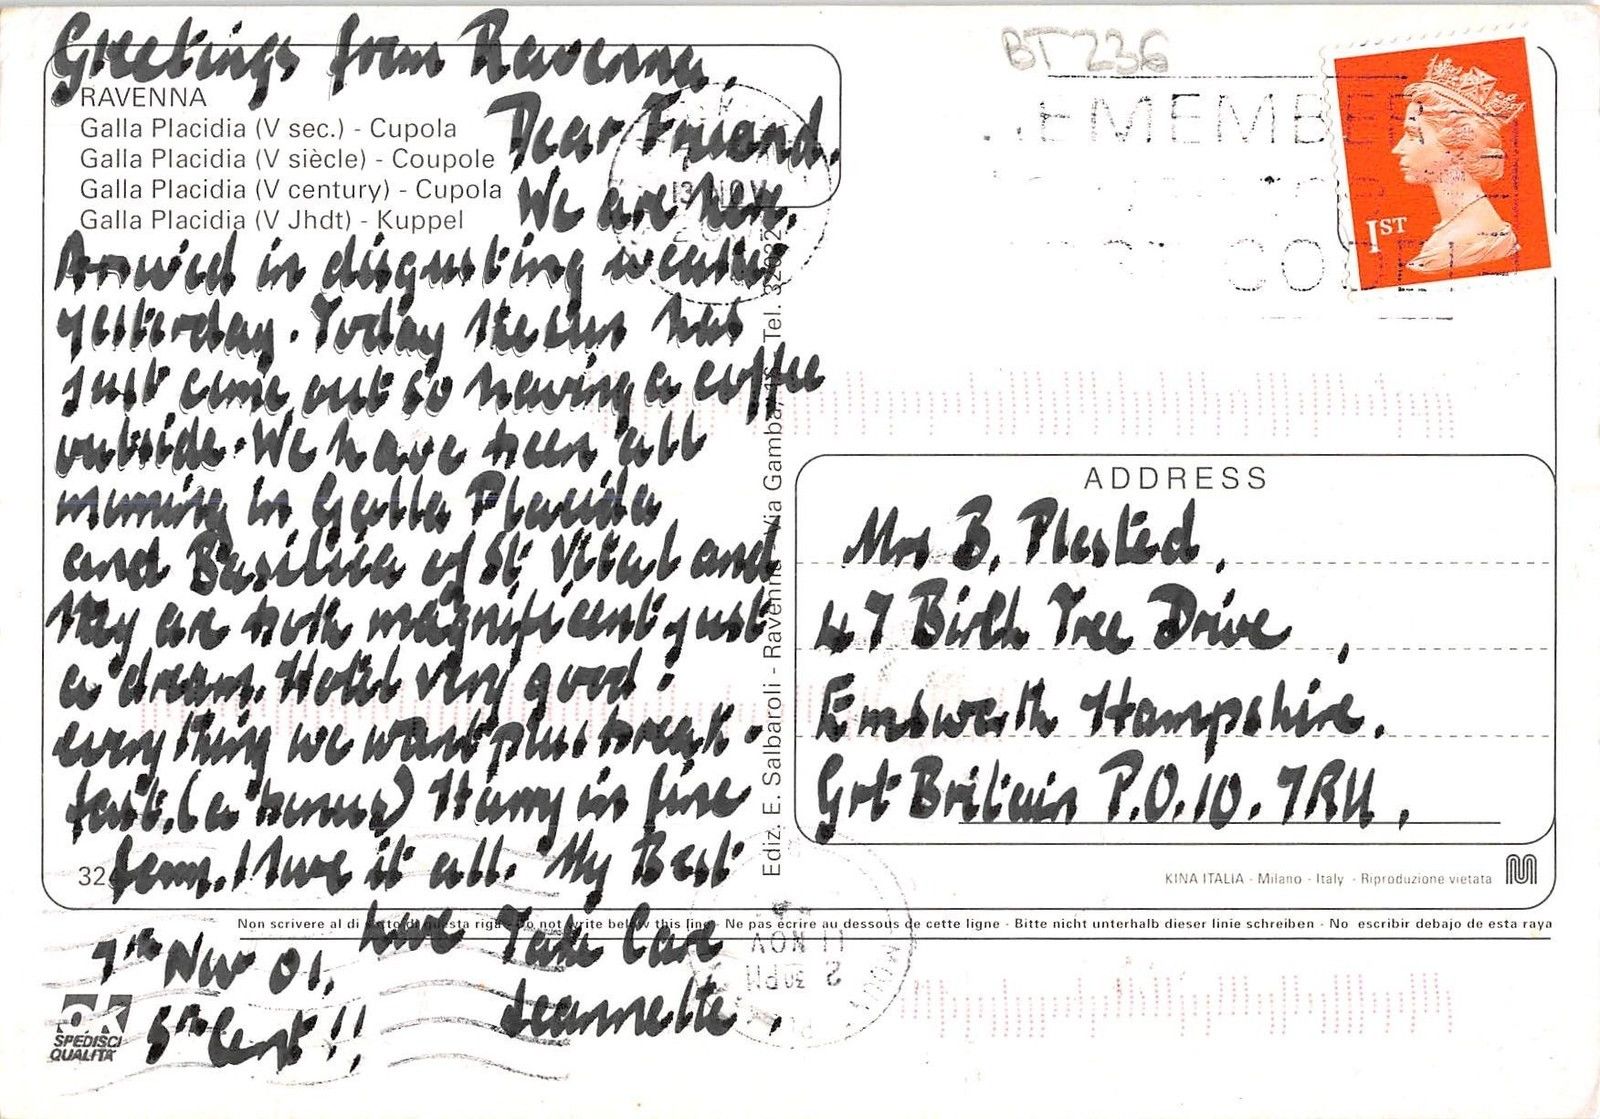 Greetings from Ravenna,
RAVENNA
Galla Placidia (V sec.) - Cupola
Galla Placidia (V siècle) - Coupole
Galla Placidia (V century) - Cupola
Galla Placidia (V Jhdt) - Kuppel
Dear Friend,
We are here,
Arrived in disgusting weather
yesterday. Today the sun has
just come out so having a coffee
outside. We have been all
morning in Galla Placida
and Basilica of St Vital and
they are both magnificent just
a dream. Hotel very good:
everything we want plus break-
fast. (a bonus) Harry in fine
form. I love it all. My Best
love Take Care
Jeannette.
7th Nov 01,
5th Cent !!
32
Non scrivere al di sotto di questa riga - Do not write below this line - Ne pas écrire au dessous de cette ligne - Bitte nicht unterhalb dieser linie schreiben - No escribir debajo de esta raya
OK
SPEDISCI
QUALITÀ
Ediz. E. Salbaroli - Ravenna Via Gamba, Tel.
BT236
1ST
13 NOV
11 NOV
2 30PM
ADDRESS
Mrs B. Plested,
47 Birth Tree Drive,
Emsworth Hampshire.
Grt Britain P.O.10. 7RU,
KINA ITALIA - Milano - Italy - Riproduzione vietata